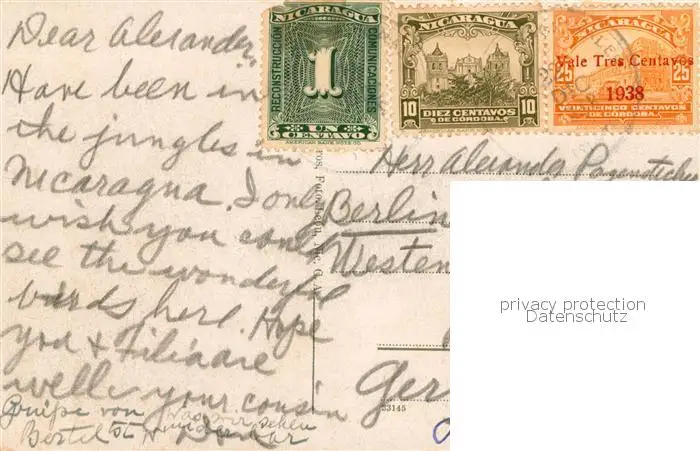 Dear Alexander,
Have been in
the jungles in
Nicaragua. I only
wish you could
see the wonderful
birds here. Hope
you + are
welle your cousin
Grüße von
NICARAGUA
RECONSTRUCCION
COMUNICACIONES
1
UN
CENTAVO
AMERICAN BANK NOTE CO.
NICARAGUA
10 10
DIEZ CENTAVOS
DE CORDOBA
NICARAGUA
Vale Tres Centavos
25 25
1938
VEINTICINCO CENTAVOS
DE CORDOBA
Herr Alexander
Berlin
Westen
Ger
33145
privacy protection
Datenschutz